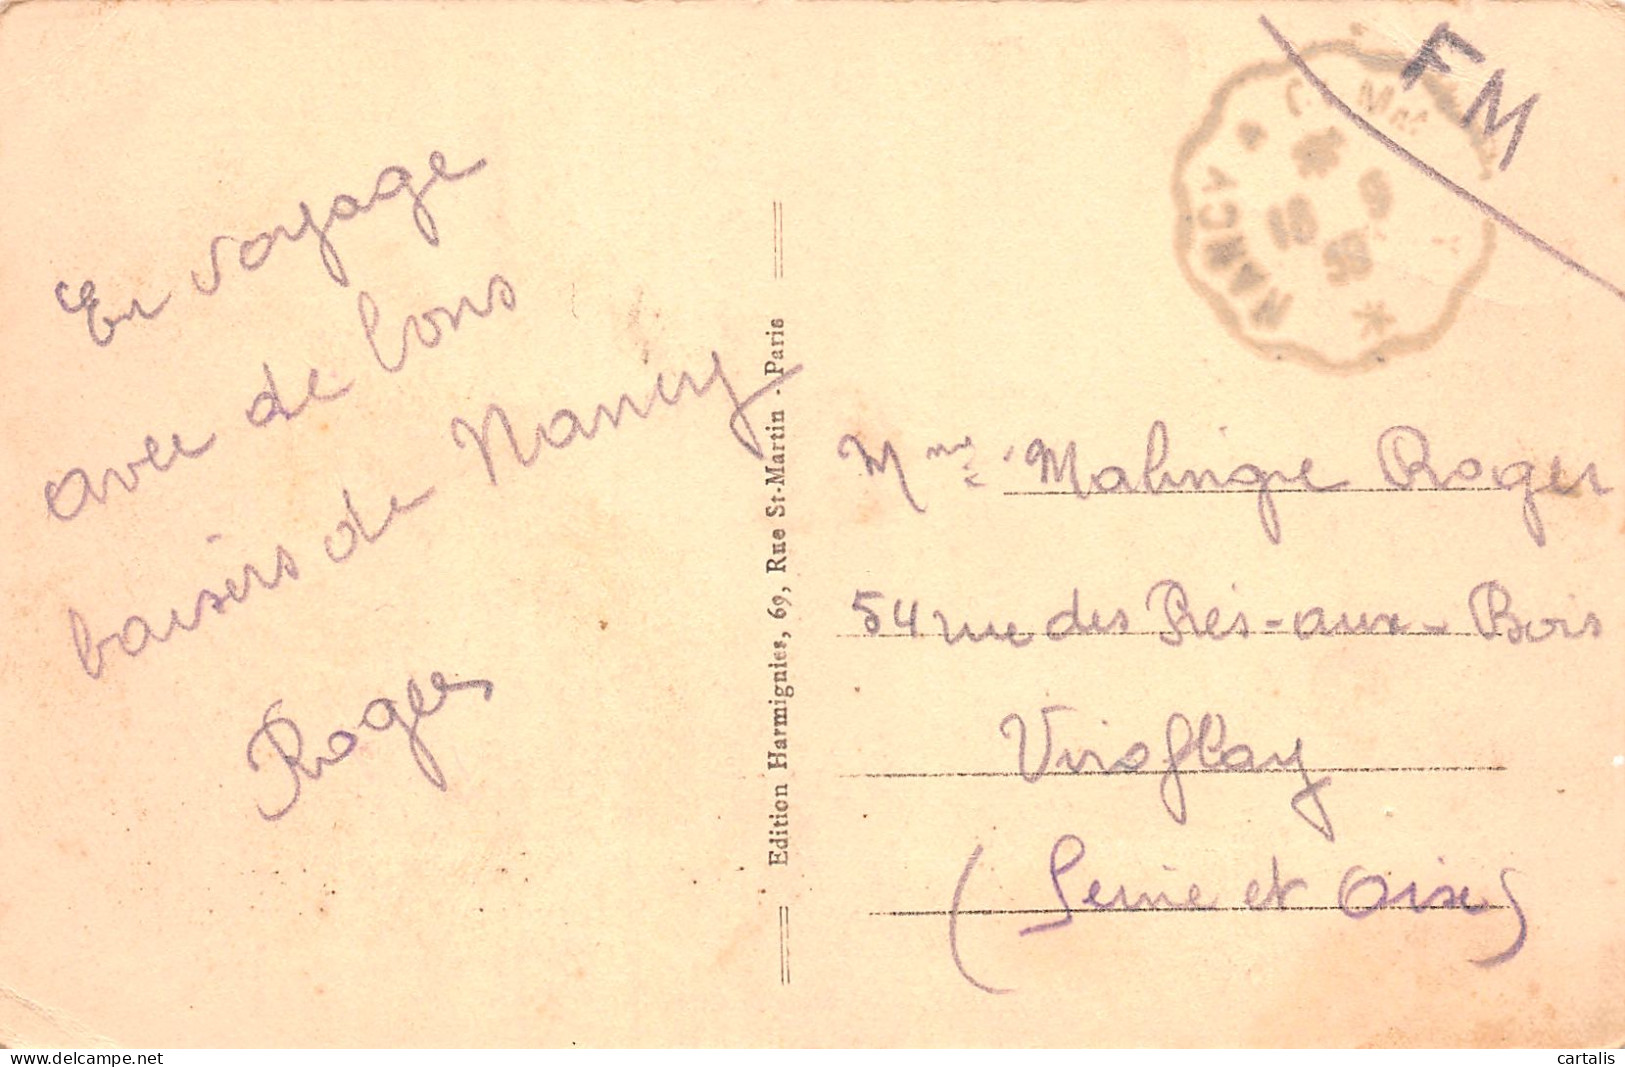 En voyage
avec de bons
baisers de Nancy
Roger
Edition Harmignies, 69, Rue St-Martin - Paris
FM
NANCY
Mme Malingre Roger
54 rue des Prés-aux-Bois
Viroflay
(Seine et Oise)
delcampe.net
cartalis